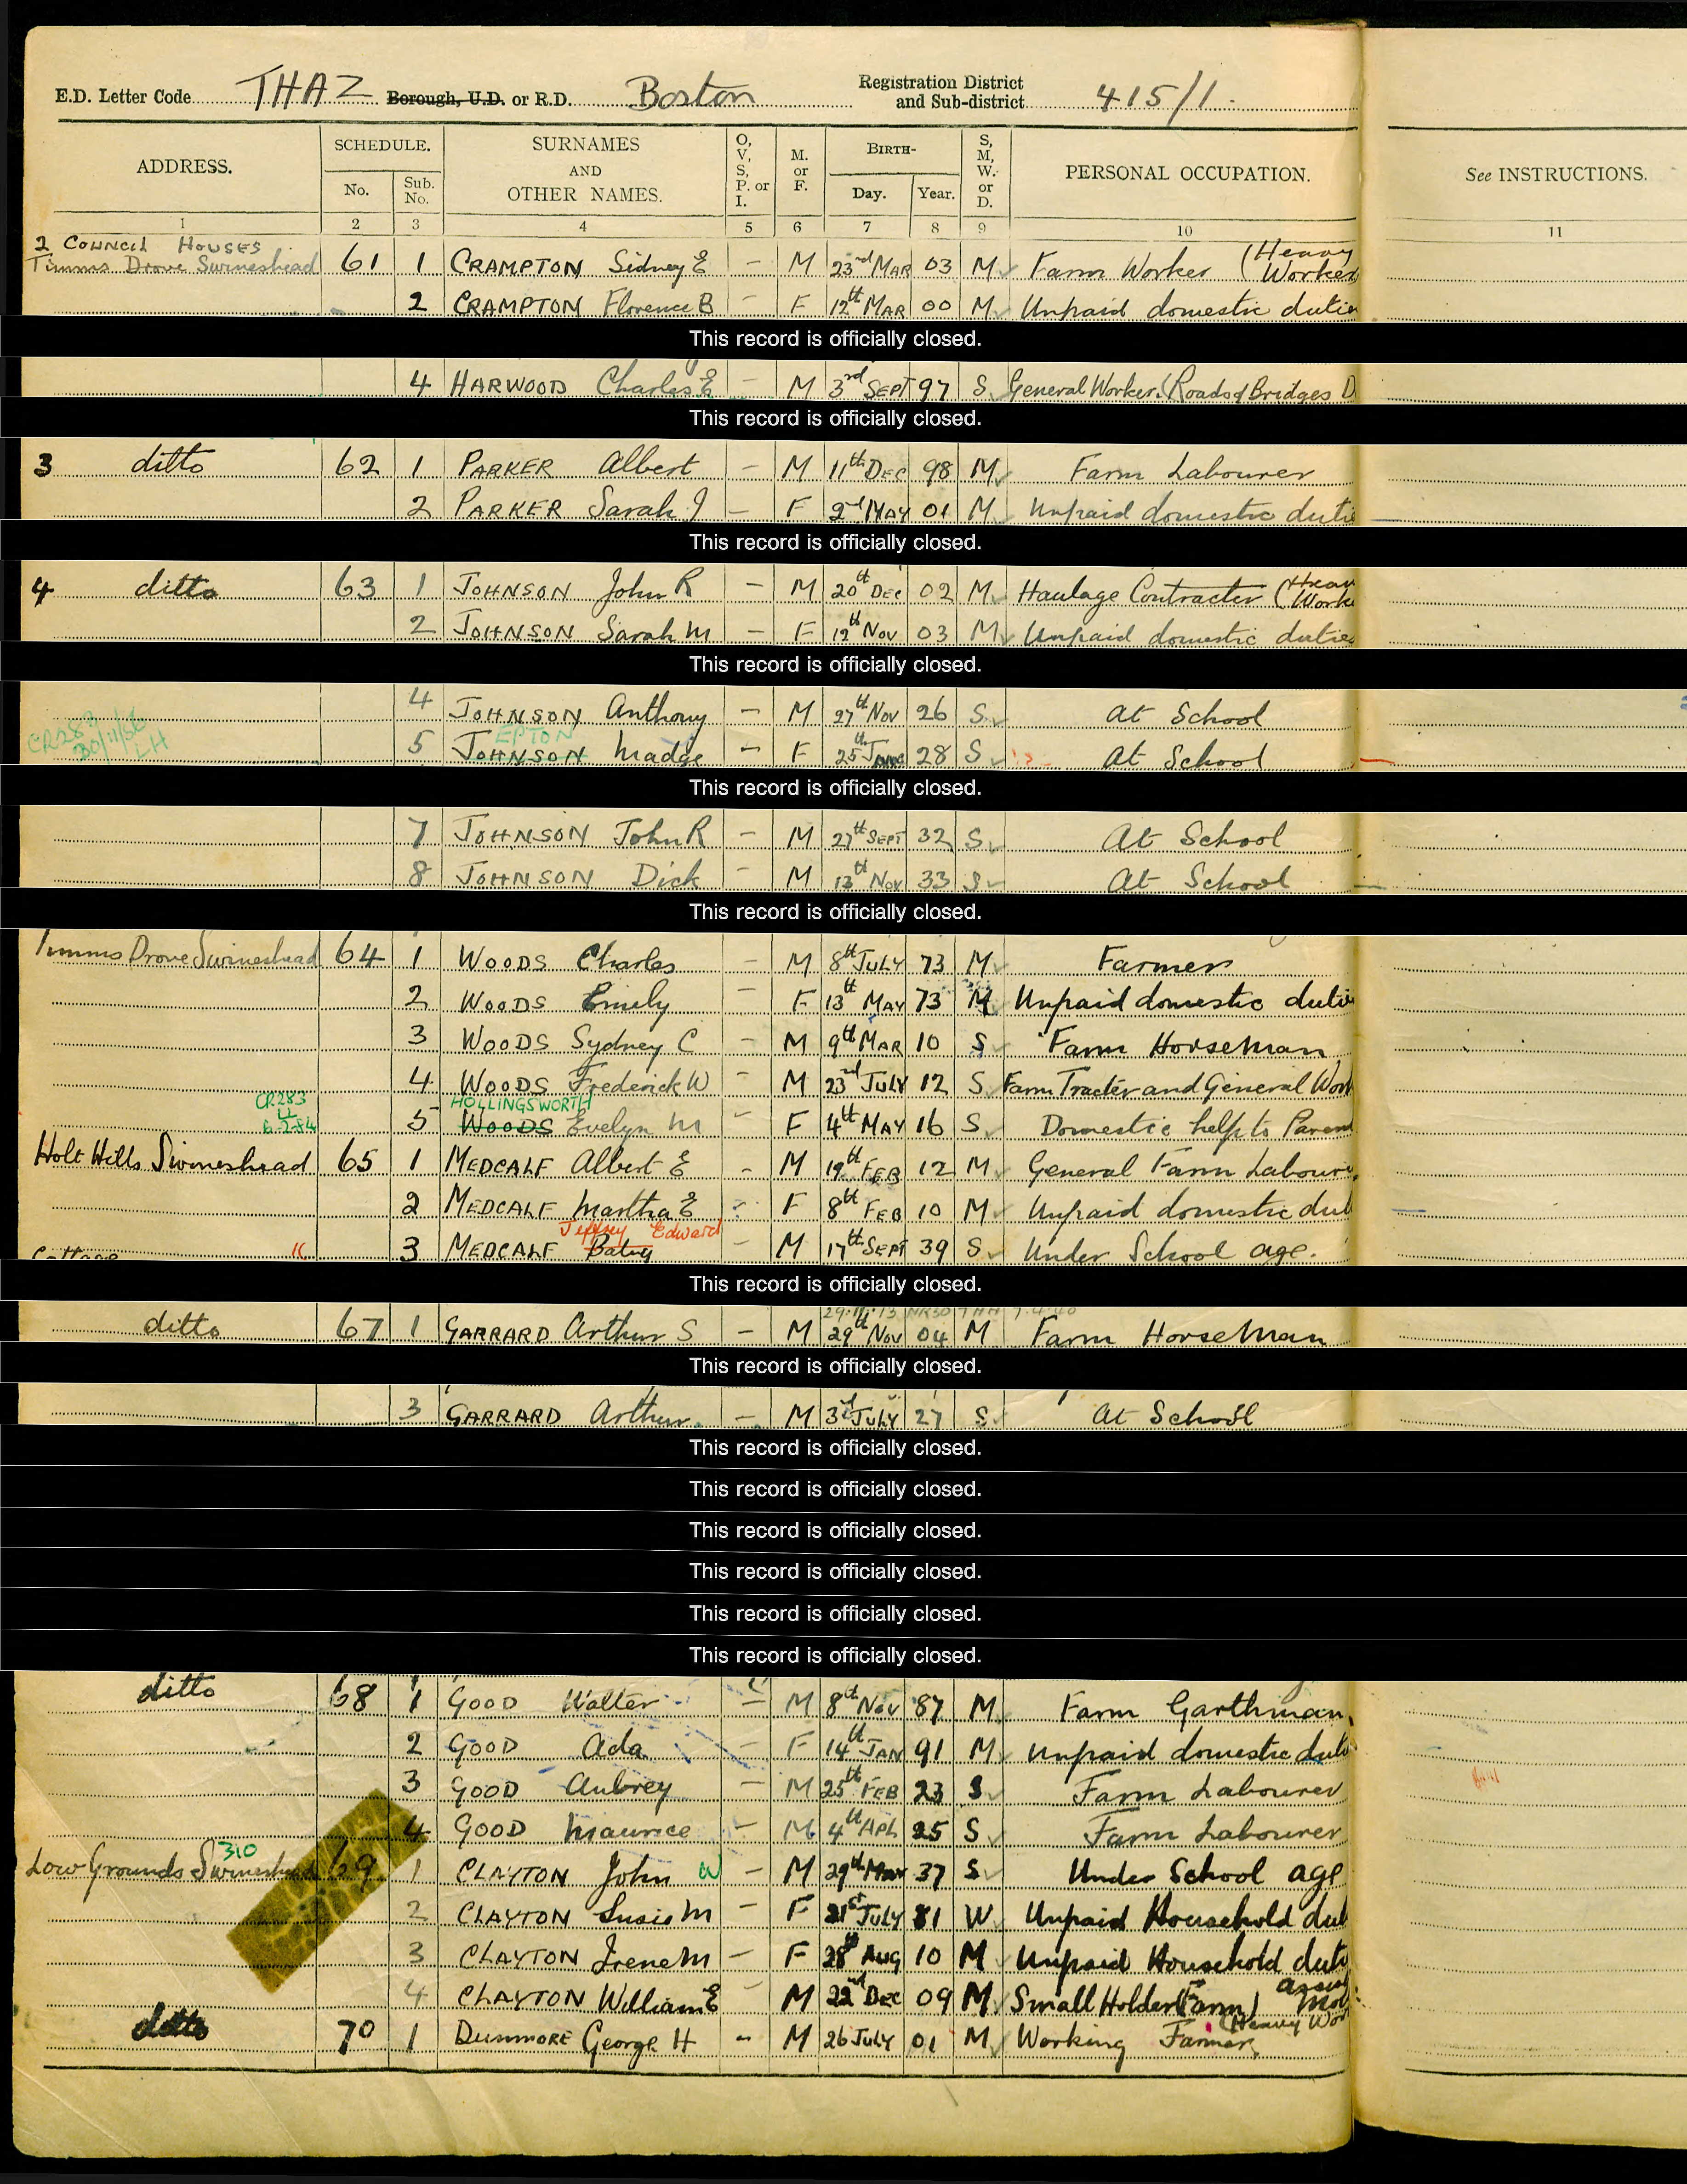 E.D. Letter Code THAZ Borough, U.D. or R.D. Boston Registration District and Sub-district 415/1.
ADDRESS. SCHEDULE. No. Sub. No. SURNAMES AND OTHER NAMES. O, V, S, P. or I. M. or F. BIRTH- Day. Year. S, M, W. or D. PERSONAL OCCUPATION. See INSTRUCTIONS.
1 2 3 4 5 6 7 8 9 10 11
2 COUNCIL HOUSES
Timms Drove Swineshead 61 1 CRAMPTON Sidney E - M 23rd MAR 03 M Farm Worker (Heavy Worker
2 CRAMPTON Florence B - F 12th MAR 00 M Unpaid domestic dutie
This record is officially closed.
4 HARWOOD Charles E - M 3rd SEPT 97 S General Worker (Roads & Bridges D
This record is officially closed.
3 ditto 62 1 PARKER Albert - M 11th DEC 98 M Farm Labourer
2 PARKER Sarah J - F 2nd MAY 01 M Unpaid domestic dutie
This record is officially closed.
4 ditto 63 1 JOHNSON John R - M 20th DEC 02 M Haulage Contracter (Heav Worke
2 JOHNSON Sarah M - F 12th Nov 03 M Unpaid domestic dutie
This record is officially closed.
4 JOHNSON Anthony - M 27th Nov 26 S At School
CR283 30/11/56 LH EPTON
5 JOHNSON Madge - F 25th June 28 S At School
This record is officially closed.
7 JOHNSON John R - M 27th SEPT 32 S At School
8 JOHNSON Dick - M 13th Nov 33 S At School
This record is officially closed.
Timms Drove Swineshead 64 1 WOODS Charles - M 8th JULY 73 M Farmer
2 WOODS Emily - F 13th MAY 73 M Unpaid domestic dutie
3 WOODS Sydney C - M 9th MAR 10 S Farm Horseman
4 WOODS Frederick W - M 23rd JULY 12 S Farm Tracter and General Work
CR283 LL 6.2.84 HOLLINGSWORTH
5 WOODS Evelyn M - F 4th MAY 16 S Domestic help to Parent
Holt Hills Swineshead 65 1 MEDCALF Albert E - M 19th FEB 12 M General Farm Laboure
2 MEDCALF Martha E - F 8th FEB 10 M Unpaid domestic dut
Jeffrey Edward
Cottage 3 MEDCALF Baby - M 17th SEPT 39 S Under School age.
This record is officially closed.
29.11.13 NR30 THH 7.4.40
ditto 67 1 GARRARD Arthur S - M 29th Nov 04 M Farm Horseman
This record is officially closed.
3 GARRARD Arthur - M 3rd JULY 27 S At School
This record is officially closed.
This record is officially closed.
This record is officially closed.
This record is officially closed.
This record is officially closed.
This record is officially closed.
ditto 68 1 GOOD Walter - M 8th Nov 87 M Farm Garthman
2 GOOD Ada - F 14th JAN 91 M Unpaid domestic duti
3 GOOD Aubrey - M 25th FEB 23 S Farm Labourer
4 GOOD Maurice - M 4th APL 25 S Farm Labourer
310
Low Grounds Swineshead 69 1 CLAYTON John W - M 29th MAY 37 S Under School age
2 CLAYTON Susie M - F 21st JULY 81 W Unpaid Household dut
3 CLAYTON Irene M - F 28th AUG 10 M Unpaid Household duti
4 CLAYTON William E - M 22nd DEC 09 M Small Holder (Farm)
ditto 70 1 DUNMORE George H - M 26 JULY 01 M Working Farmer (Heavy Wor